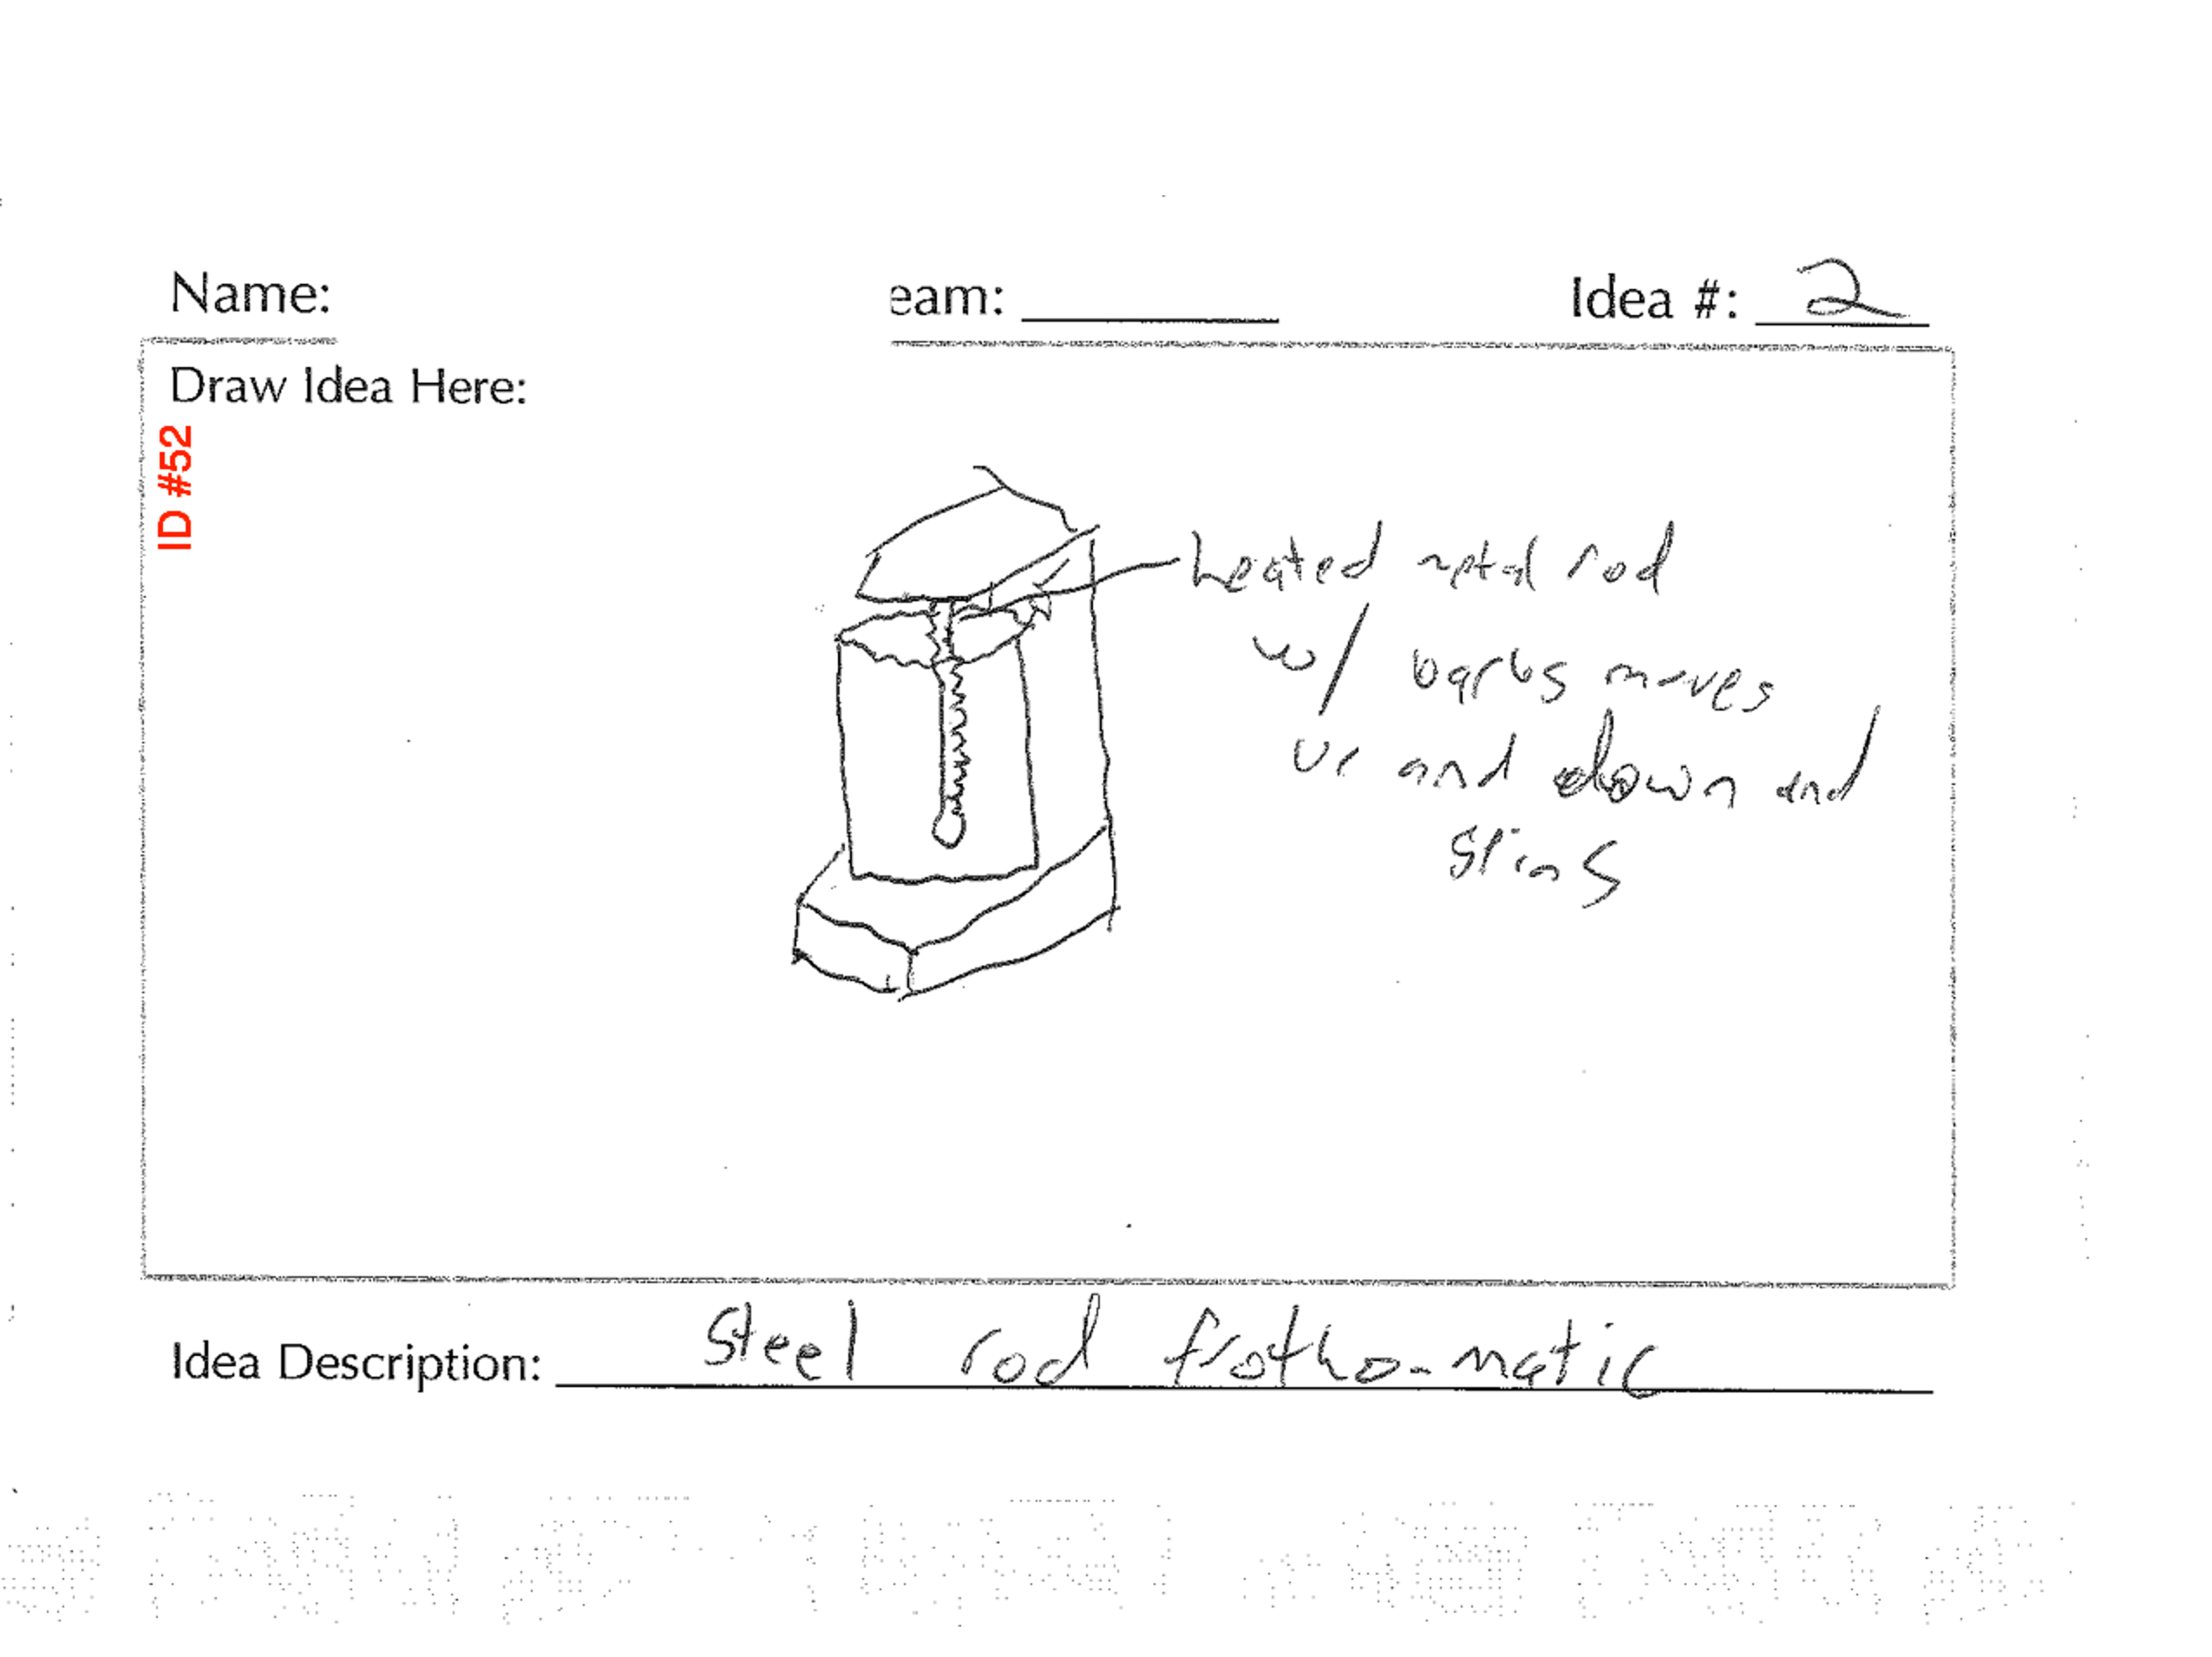 Name:
eam:
Idea #: 2
Draw Idea Here:
ID #52
heated metal rod
w/ barbs moves
up and down and
spins
Idea Description: Steel rod frotho-matic